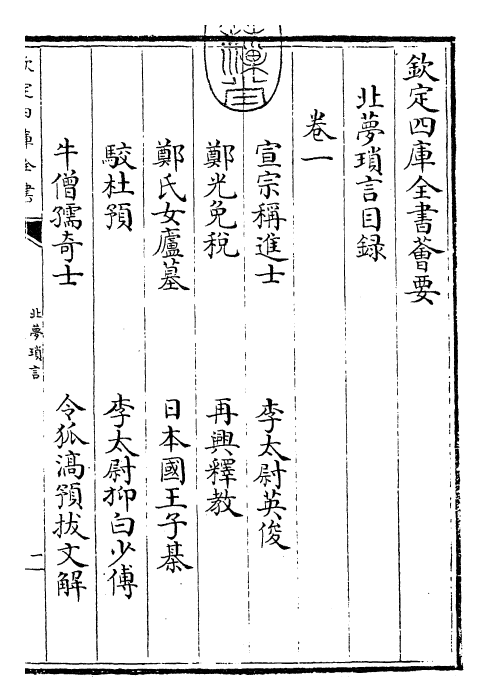 欽定四庫全書薈要
北夢瑣言目録
卷一
宣宗稱進士
李太尉英俊
鄭光免稅
再興釋教
鄭氏女廬墓
日本國王子棊
駮杜預
李太尉抑白少傅
牛僧孺奇士
令狐滈預拔文解
欽定四庫全書
北夢瑣言